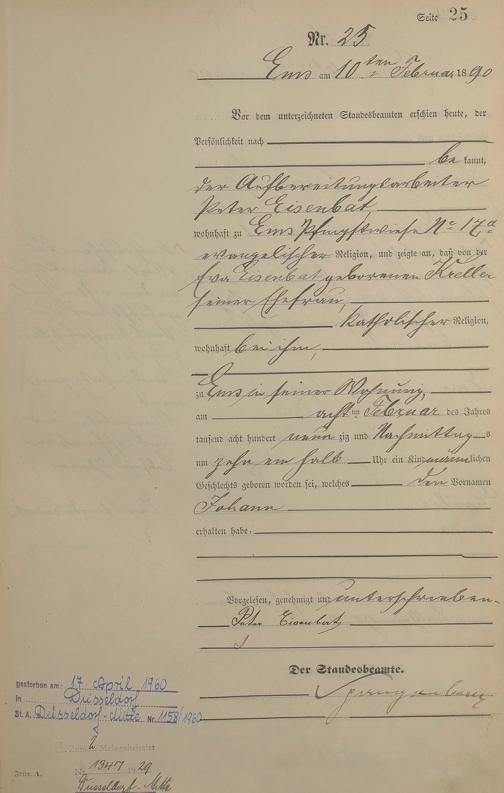 Seite 25
Nr. 25
Ems am 10ten Februar 1890
Vor dem unterzeichneten Standesbeamten erschien heute, der
Persönlichkeit nach
bekannt,
der Aufbereitungsarbeiter
Peter Eisenbat,
wohnhaft zu Ems No 17a
evangelischer Religion, und zeigte an, daß von der
Eva Eisenbat geborenen Kreller
seiner Ehefrau,
katholischer Religion,
wohnhaft bei ihm,
zu Ems in seiner Wohnung,
am acht ten Februar des Jahres
tausend acht hundert neunzig und Nachmittags
um zehn ein halb Uhr ein Kind männlichen
Geschlechts geboren worden sei, welches den Vornamen
Johann
erhalten habe.
Vorgelesen, genehmigt und unterschrieben.
Peter Eisenbat
Der Standesbeamte.
Spangenberg
gestorben am: 17. April 1960
in Düsseldorf
St. A. Düsseldorf-Mitte Nr. 1158/1960
2.
Nr. 1347 1929
Düsseldorf-Mitte
Form. A.